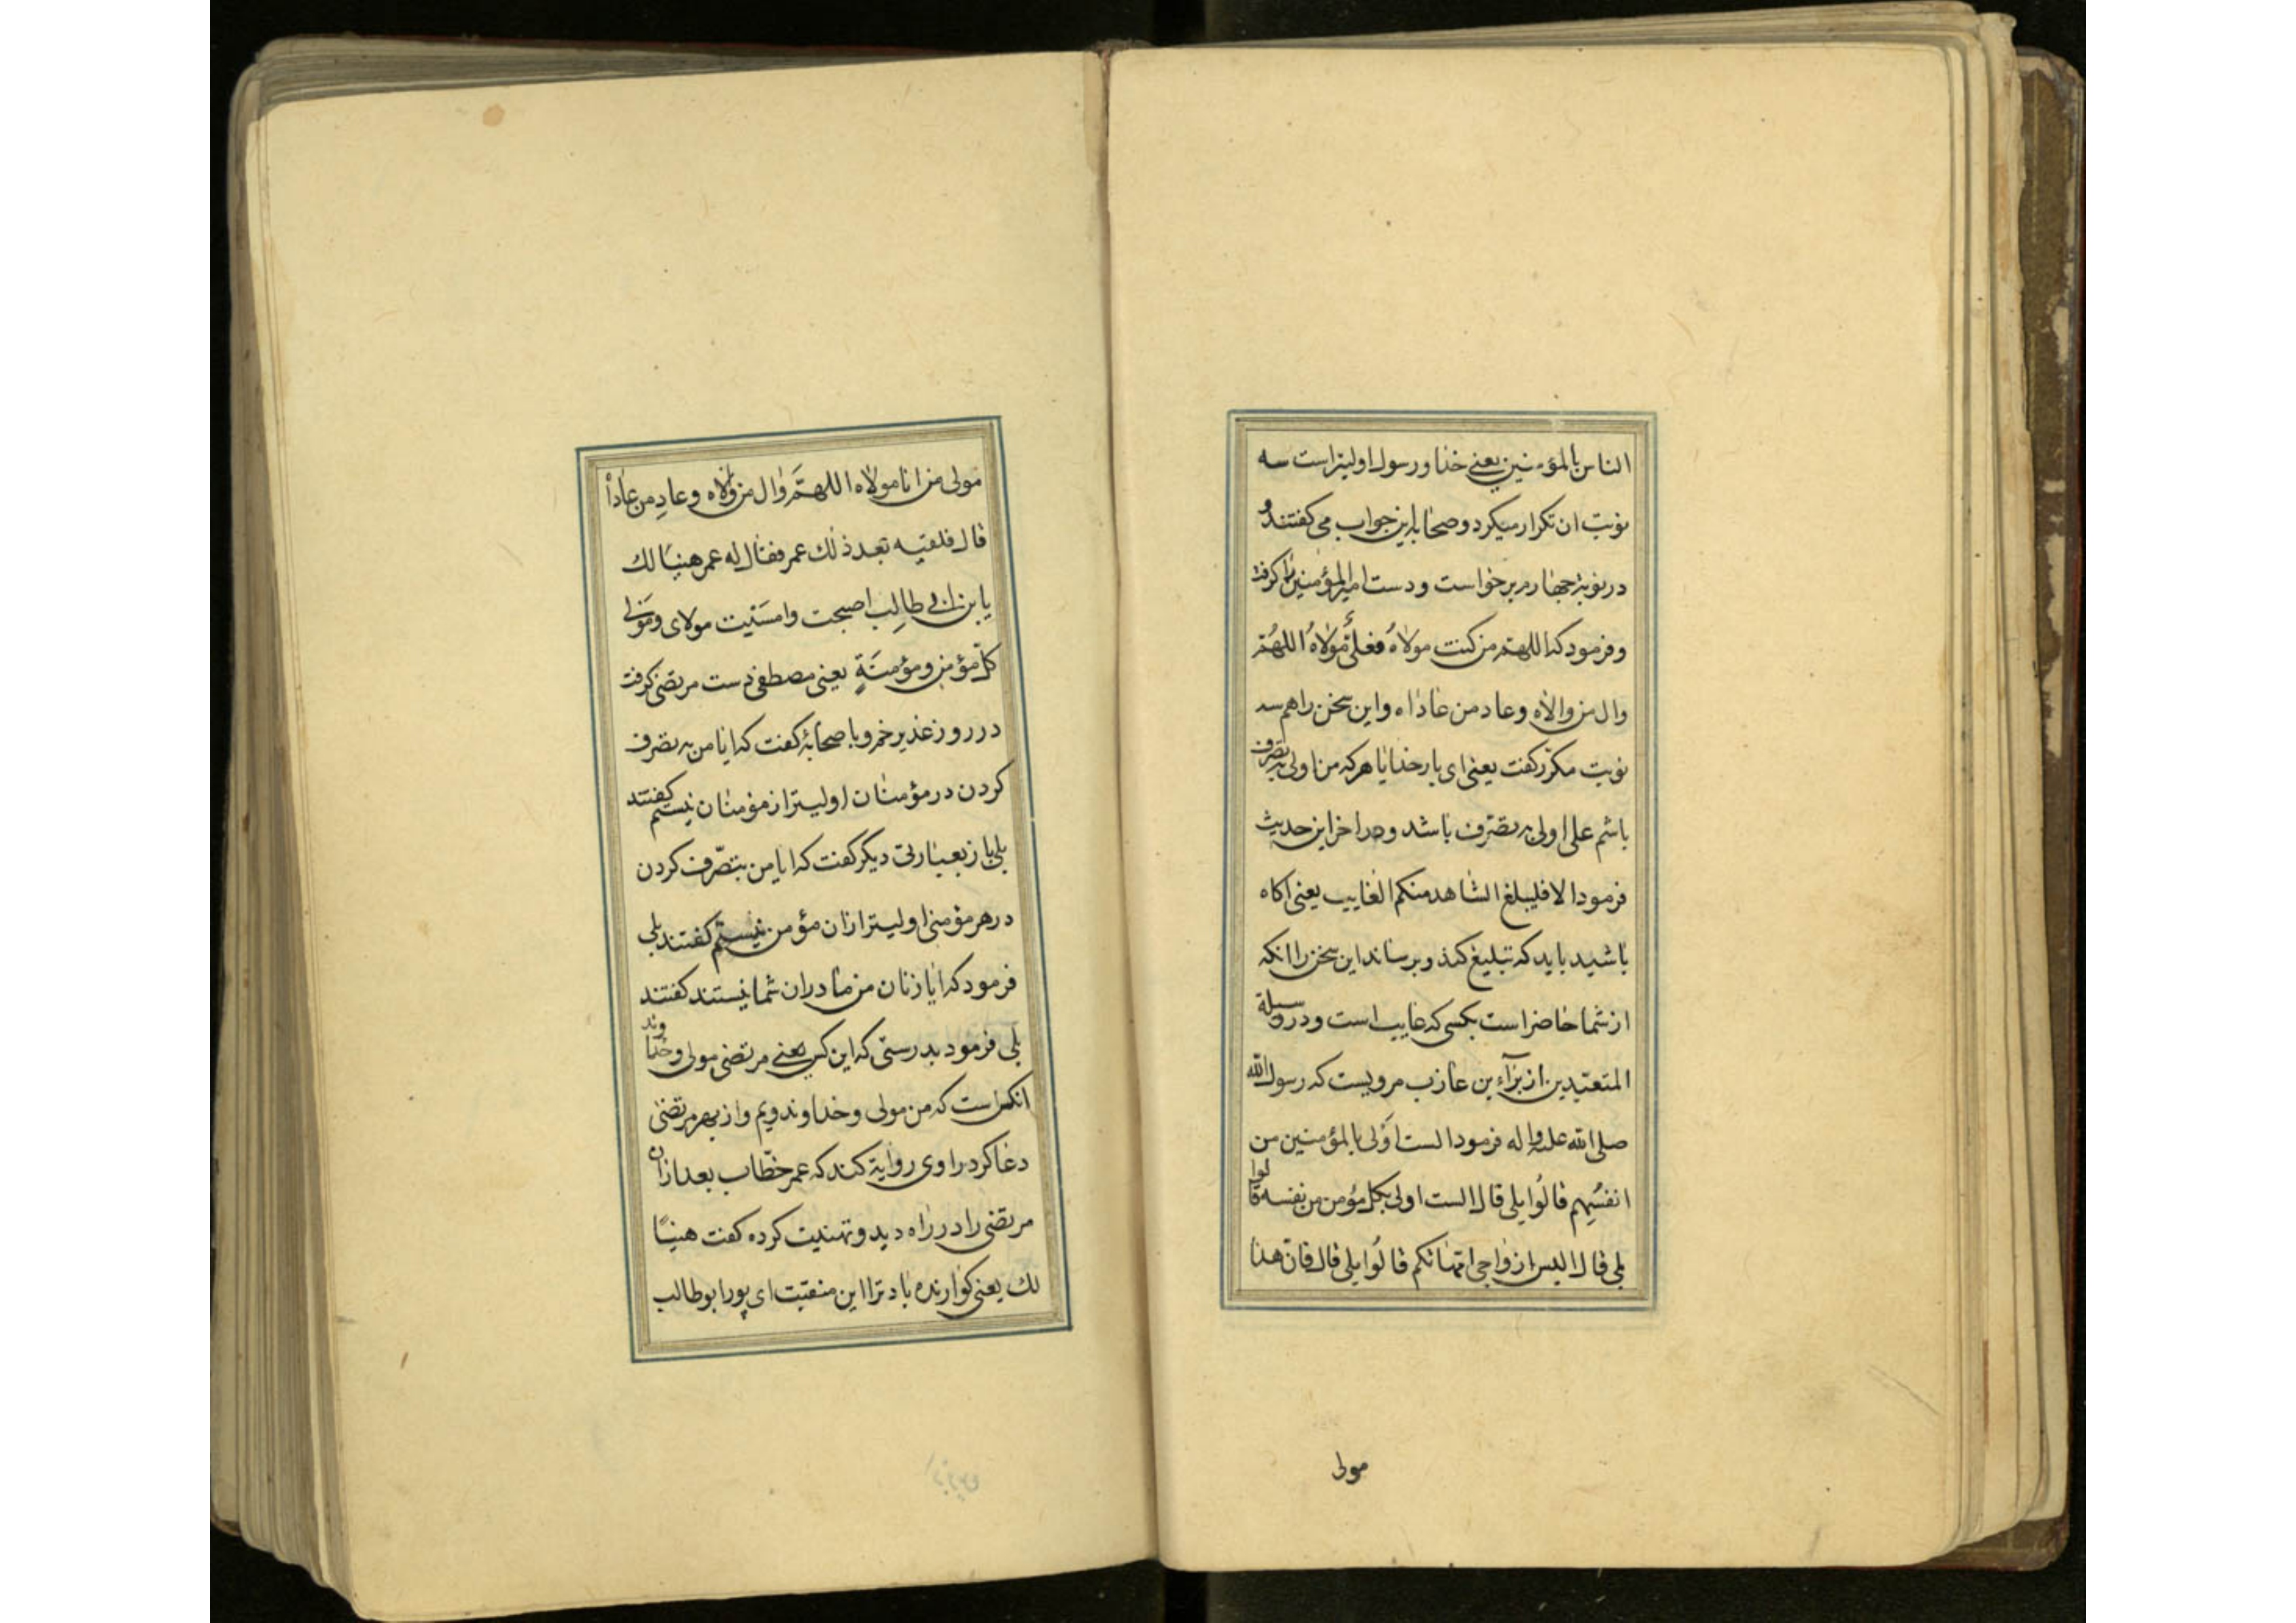 الناس بالمؤمنین یعنی خدا و رسول اولیتر است سه
نوبت ان تکرار میکرد و صحابه این جواب می کفتند و
در نوبة جهارم برخواست و دست امیرالمؤمنین را کرفت
و فرمود که اللهم من کنت مولاهُ فعلیٌّ مولاهُ اللهُمّ
وال من والاه وعاد من عاداه و این سخن را هم سه
نوبت مکرّر کفت یعنی ای بار خدایا هر که من اولی به تصرف
باشم علی اولی به تصرّف باشد و در اخر این حدیث
فرمود الا فلیبلغ الشاهد منکم الغایب یعنی اکاه
باشید باید که تبلیغ کند و برساند این سخن را انکه
از شما حاضر است بکسی که غایب است و در وسیلة
المتعبّدین از برآء بن عازب مرویست که رسول الله
صلی الله علیه واله فرمود الست اَولی بالمؤمنین من
انفسُهِم قالُوا بلی قال الست اولی بکل مؤمن من نفسه قالوا
بلی قال الیس ازواجی امّهاتکم قالُوا بلی قال فانّ هذا
مولی
مولی من انا مولاه اللهمَّ وال من والاه وعادِ من عاداهُ
قال فلقیه بعد ذلك عمر فقال له عمر هنیًا لك
یا بن ابی طالِب اصبحت وامسَیت مولای ومَولی
کلّ مؤمنٍ ومؤمنَةٍ یعنی مصطفی دست مرتضی کرفت
در روز غدیر خم و با صحابهٔ کفت که ایا من به تصرف
کردن در مؤمنان اولیتر از مؤمنان نیستم کفتند
بلی باز بعبارتی دیکر کفت که ایا من بتصّرف کردن
در هر مؤمنی اولیتر از ان مؤمن نیستم کفتند بلی
فرمود که ایا زنان من مادران شما نیستند کفتند
بلی فرمود بدرستی که این کس یعنی مرتضی مولی و خداوند
انکس است که من مولی و خداوند ویم و از بهر مرتضی
دعا کرد راوی روایة کند که عمر خطّاب بعد از ان
مرتضی را در راه دید و تهنیت کرده کفت هنیًا
لك یعنی کوارنده باد ترا این منقبت ای پور ابو طالب